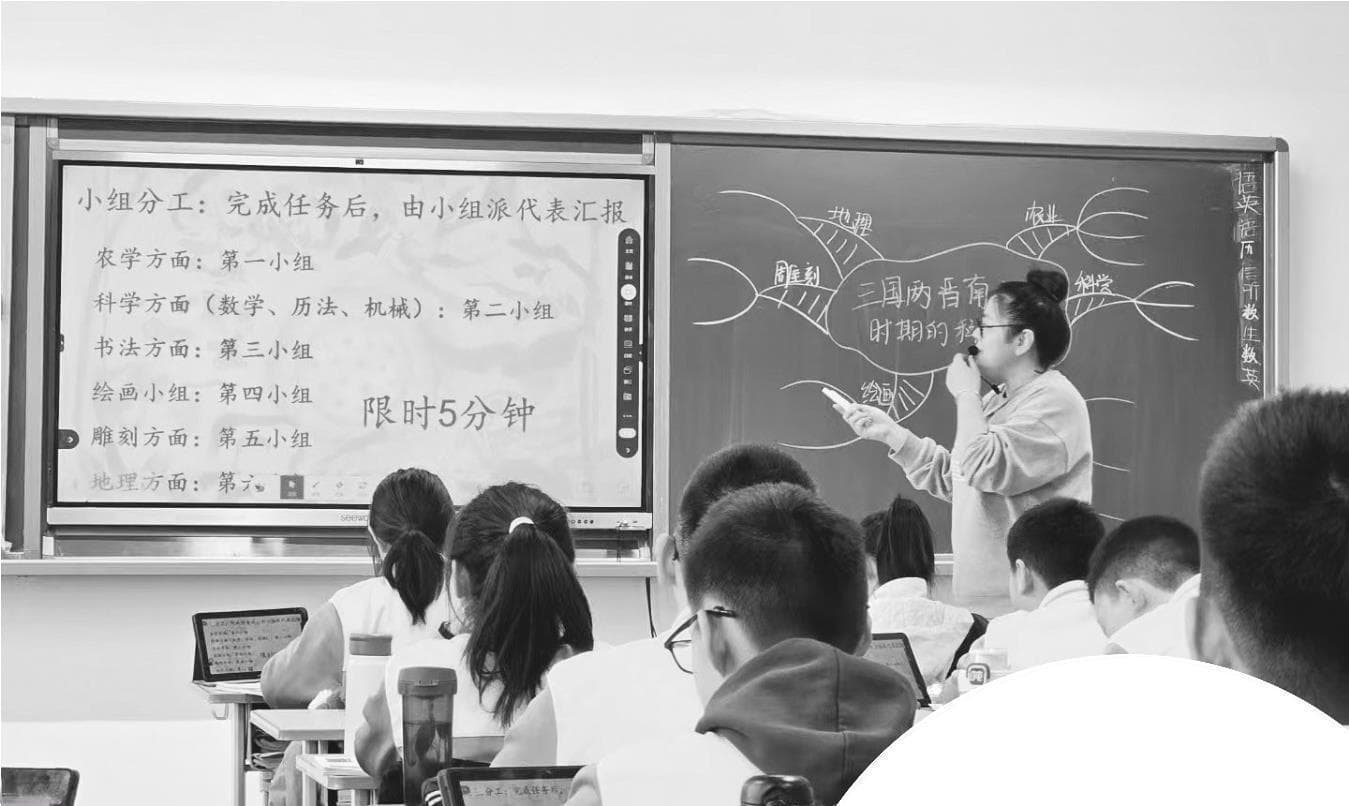 小组分工：完成任务后，由小组派代表汇报
农学方面：第一小组
科学方面（数学、历法、机械）：第二小组
书法方面：第三小组
绘画小组：第四小组
限时5分钟
雕刻方面：第五小组
地理方面：第六
seewo
地理
农业
雕刻
科学
三国两晋南
时期的科
绘画
语
英
语
历
信
所
数
生
数
英
二分工：完成任务后，